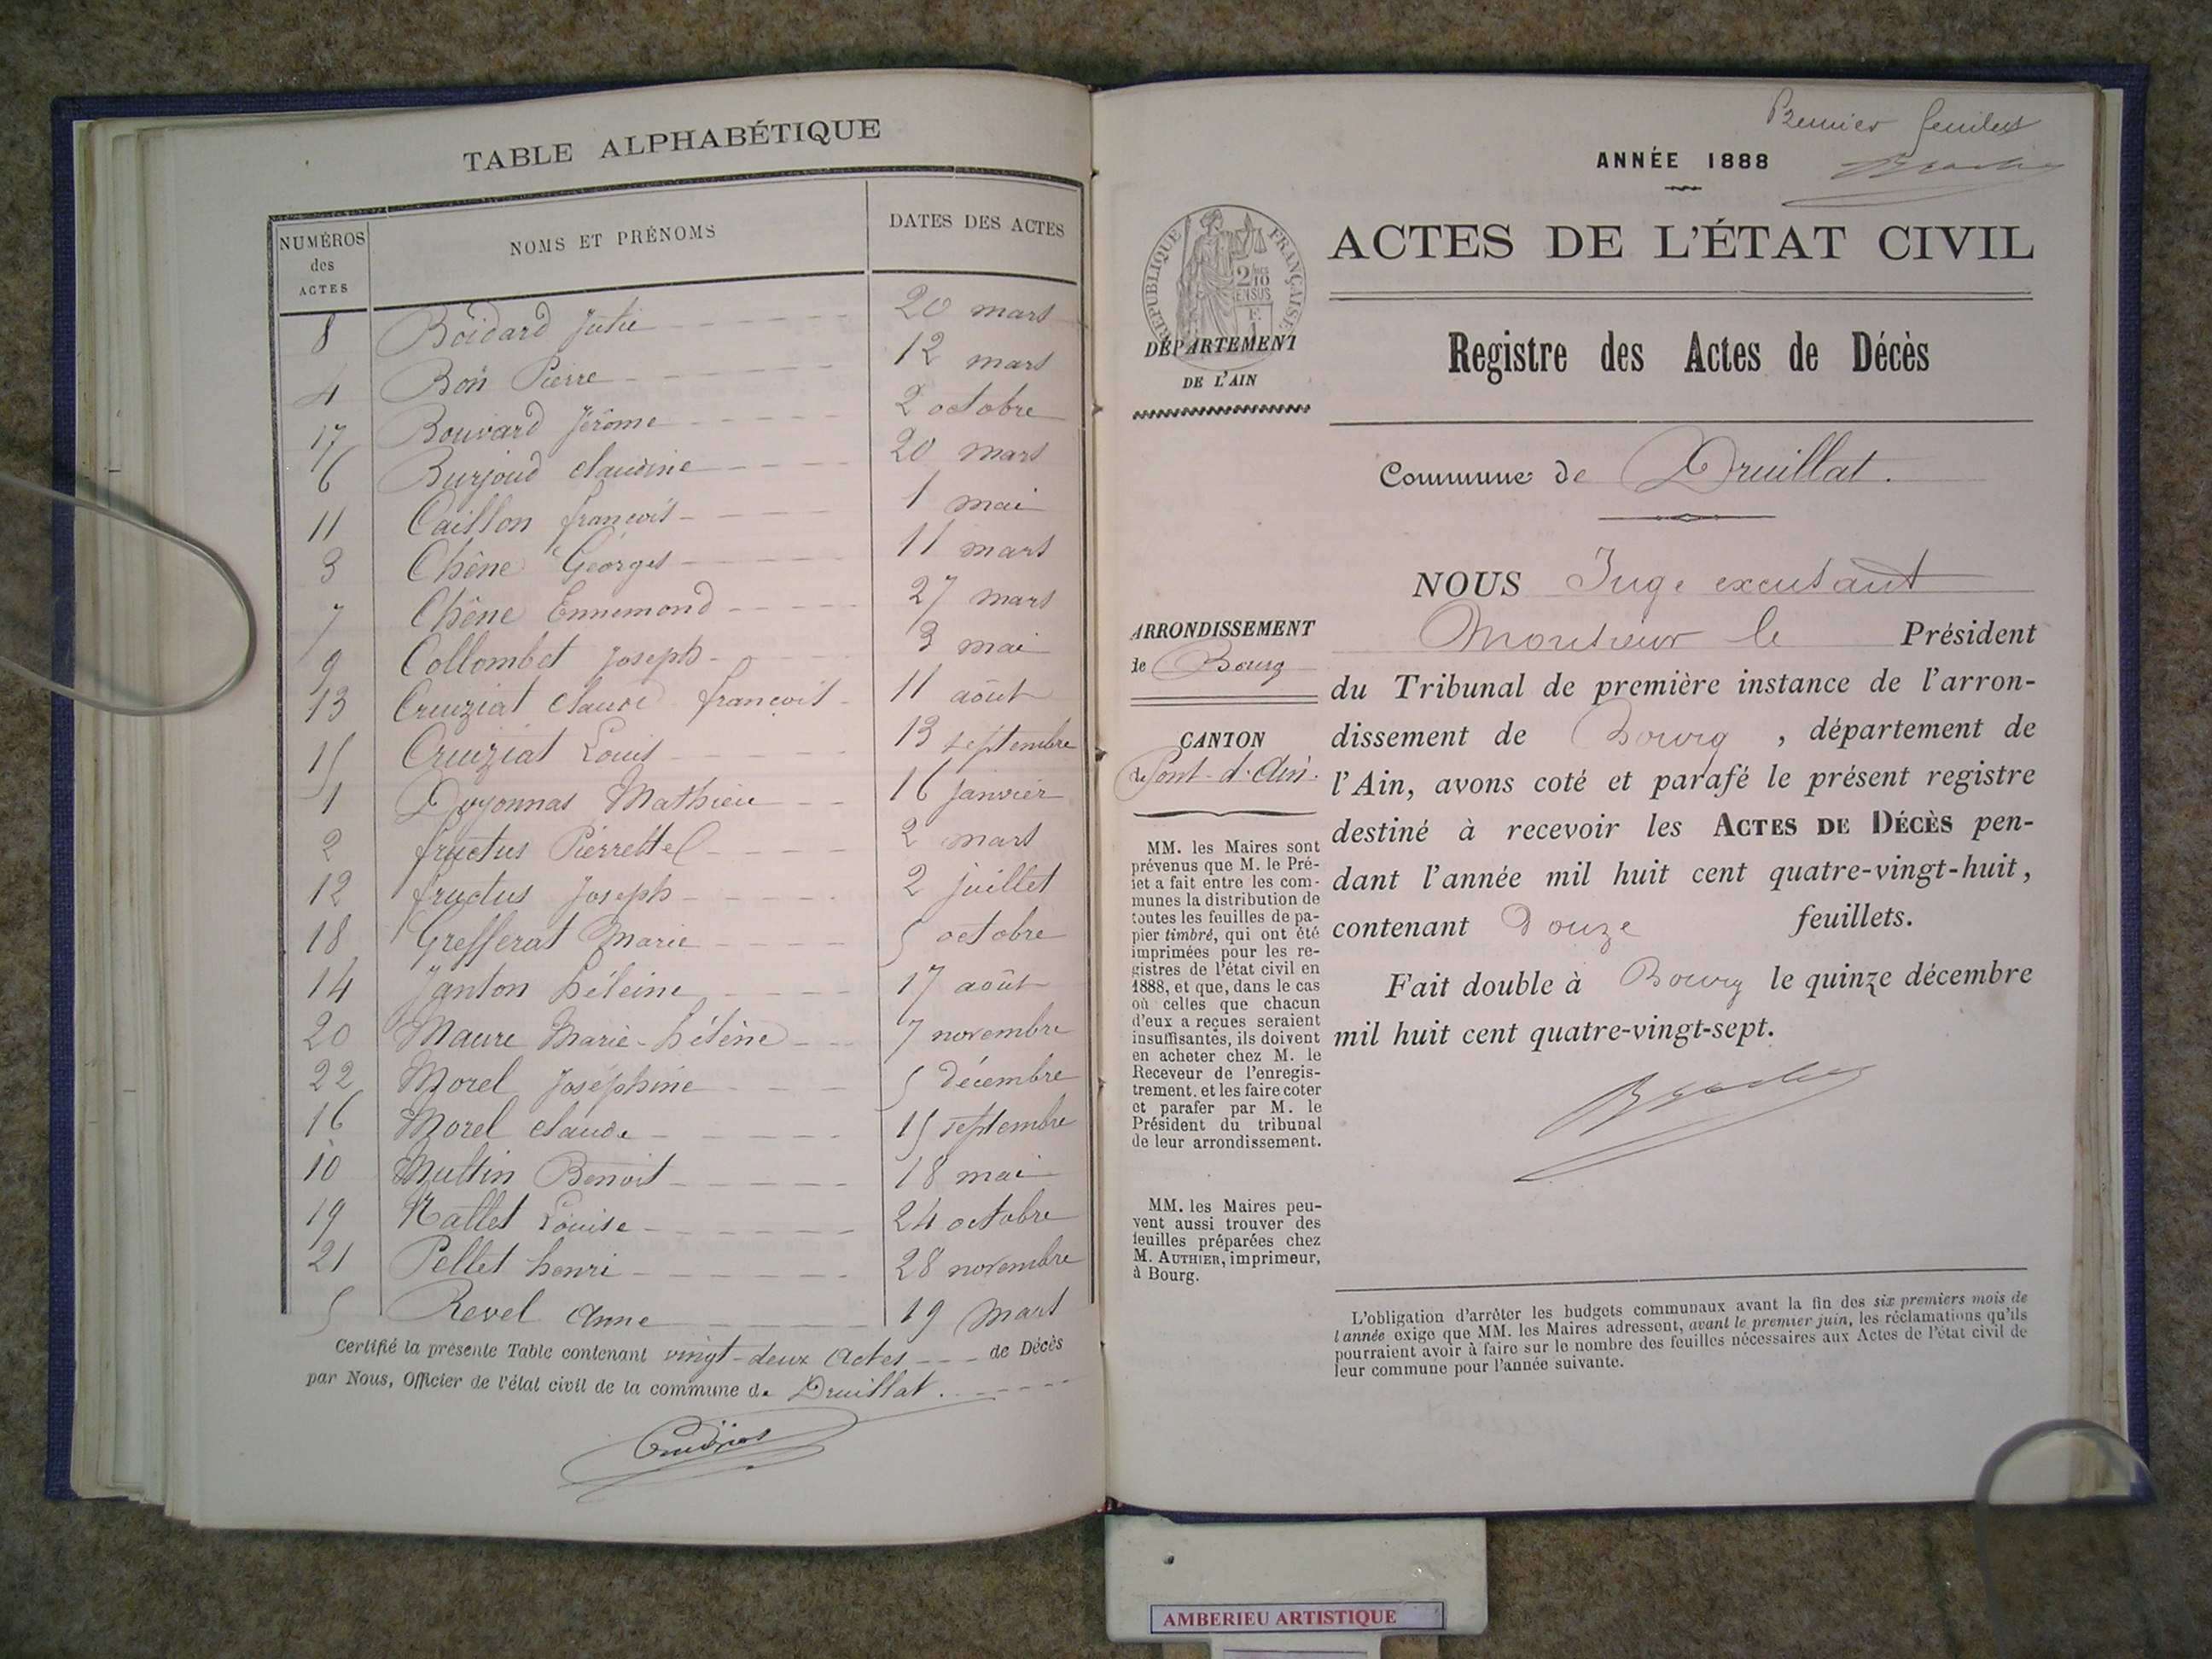 TABLE ALPHABÉTIQUE
NUMÉROS des ACTES NOMS ET PRÉNOMS DATES DES ACTES
8 Boidard Julie 20 mars
4 Bon Pierre 12 mars
17 Bouvard Jérôme 2 octobre
6 Burjoud claudine 20 mars
11 Caillon françois 1 mai
3 Chêne Georges 11 mars
7 Chêne Ennemond 27 mars
9 Collombet Joseph 3 mai
13 Cruiziat claude françois 11 août
15 Cruiziat Louis 13 septembre
1 Duyonnas Mathieu 16 janvier
2 fructus Pierrette 2 mars
12 fructus Joseph 2 juillet
18 Grefferat Marie 5 octobre
14 Janton héleine 17 août
20 Maure Marie-hélène 7 novembre
22 Morel Joséphine 5 décembre
16 Morel claude 15 septembre
10 Multin Benoit 18 mai
19 Nallet Louise 24 octobre
21 Pellet henri 28 novembre
5 Revel Anne 19 mars
Certifié la présente Table contenant vingt-deux Actes de Décès
par Nous, Officier de l'état civil de la commune de Druillat.
Premier feuillet
ANNÉE 1888
RÉPUBLIQUE FRANÇAISE
2/10 EN SUS
DÉPARTEMENT
DE L'AIN
ACTES DE L'ÉTAT CIVIL
Registre des Actes de Décès
Commune de Druillat.
ARRONDISSEMENT
de Bourg
CANTON
de Pont-d'Ain.
MM. les Maires sont
prévenus que M. le Pré-
fet a fait entre les com-
munes la distribution de
toutes les feuilles de pa-
pier timbré, qui ont été
imprimées pour les re-
gistres de l'état civil en
1888, et que, dans le cas
où celles que chacun
d'eux a reçues seraient
insuffisantes, ils doivent
en acheter chez M. le
Receveur de l'enregis-
trement, et les faire coter
et parafer par M. le
Président du tribunal
de leur arrondissement.
MM. les Maires peu-
vent aussi trouver des
feuilles préparées chez
M. AUTHIER, imprimeur,
à Bourg.
NOUS Juge excusant
Monsieur le Président
du Tribunal de première instance de l'arron-
dissement de Bourg, département de
l'Ain, avons coté et parafé le présent registre
destiné à recevoir les ACTES DE DÉCÈS pen-
dant l'année mil huit cent quatre-vingt-huit,
contenant Douze feuillets.
Fait double à Bourg le quinze décembre
mil huit cent quatre-vingt-sept.
L'obligation d'arrêter les budgets communaux avant la fin des six premiers mois de
l'année exige que MM. les Maires adressent, avant le premier juin, les réclamations qu'ils
pourraient avoir à faire sur le nombre des feuilles nécessaires aux Actes de l'état civil de
leur commune pour l'année suivante.
AMBERIEU ARTISTIQUE